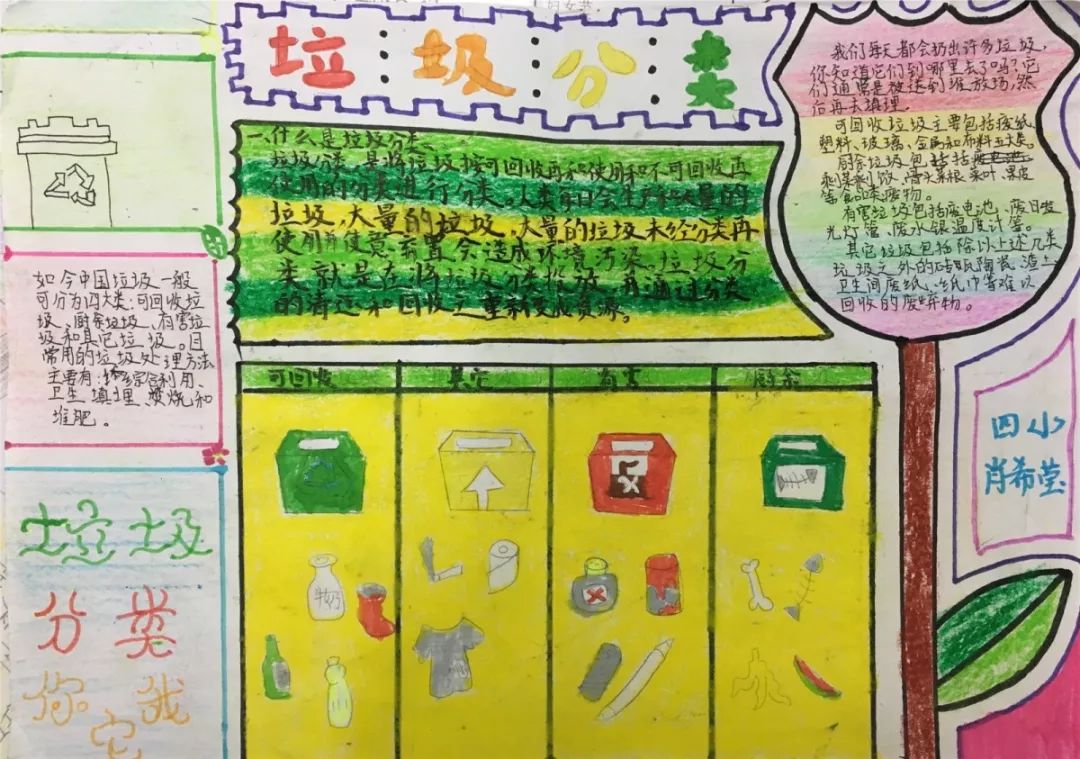 垃圾分类
一.什么是垃圾分类、
垃圾分类,是将垃圾按可回收再和使用和不可回收再
使用的分类进行分类。人类每日会生产大量的
垃圾,大量的垃圾,大量的垃圾未经分类再
使用并使意弃置会造成环境污染。垃圾分
类就是在将垃圾分类
并通过分类
的清运和回收之重新变成资源。
我们每天都会扔出许多垃圾,
你知道它们到哪里去了吗?它
们通常是被送到堆放场,然
后再去填埋.
可回收垃圾主要包括废纸、
塑料、玻璃、金属和布料五大类。
厨余垃圾包括
剩菜剩饭、骨头菜根、菜叶、果皮
等食品类废物。
有害垃圾包括废电池、废日
光灯管、废水银温度计等。
其它垃圾包括除以上述几类
垃圾之外的砖瓦陶瓷、渣土、
卫生间废纸、纸巾等难以
回收的废弃物。
如今中国垃圾一般
可分为四大类:可回收垃
圾、厨余垃圾、有害垃
圾和其它垃圾。目
常用的垃圾处理方法
主要有:综合利用、
卫生填埋、焚烧和
堆肥。
垃圾
分类
你我
它
可回收
其它
有害
厨余
牛奶
四小
肖希莹